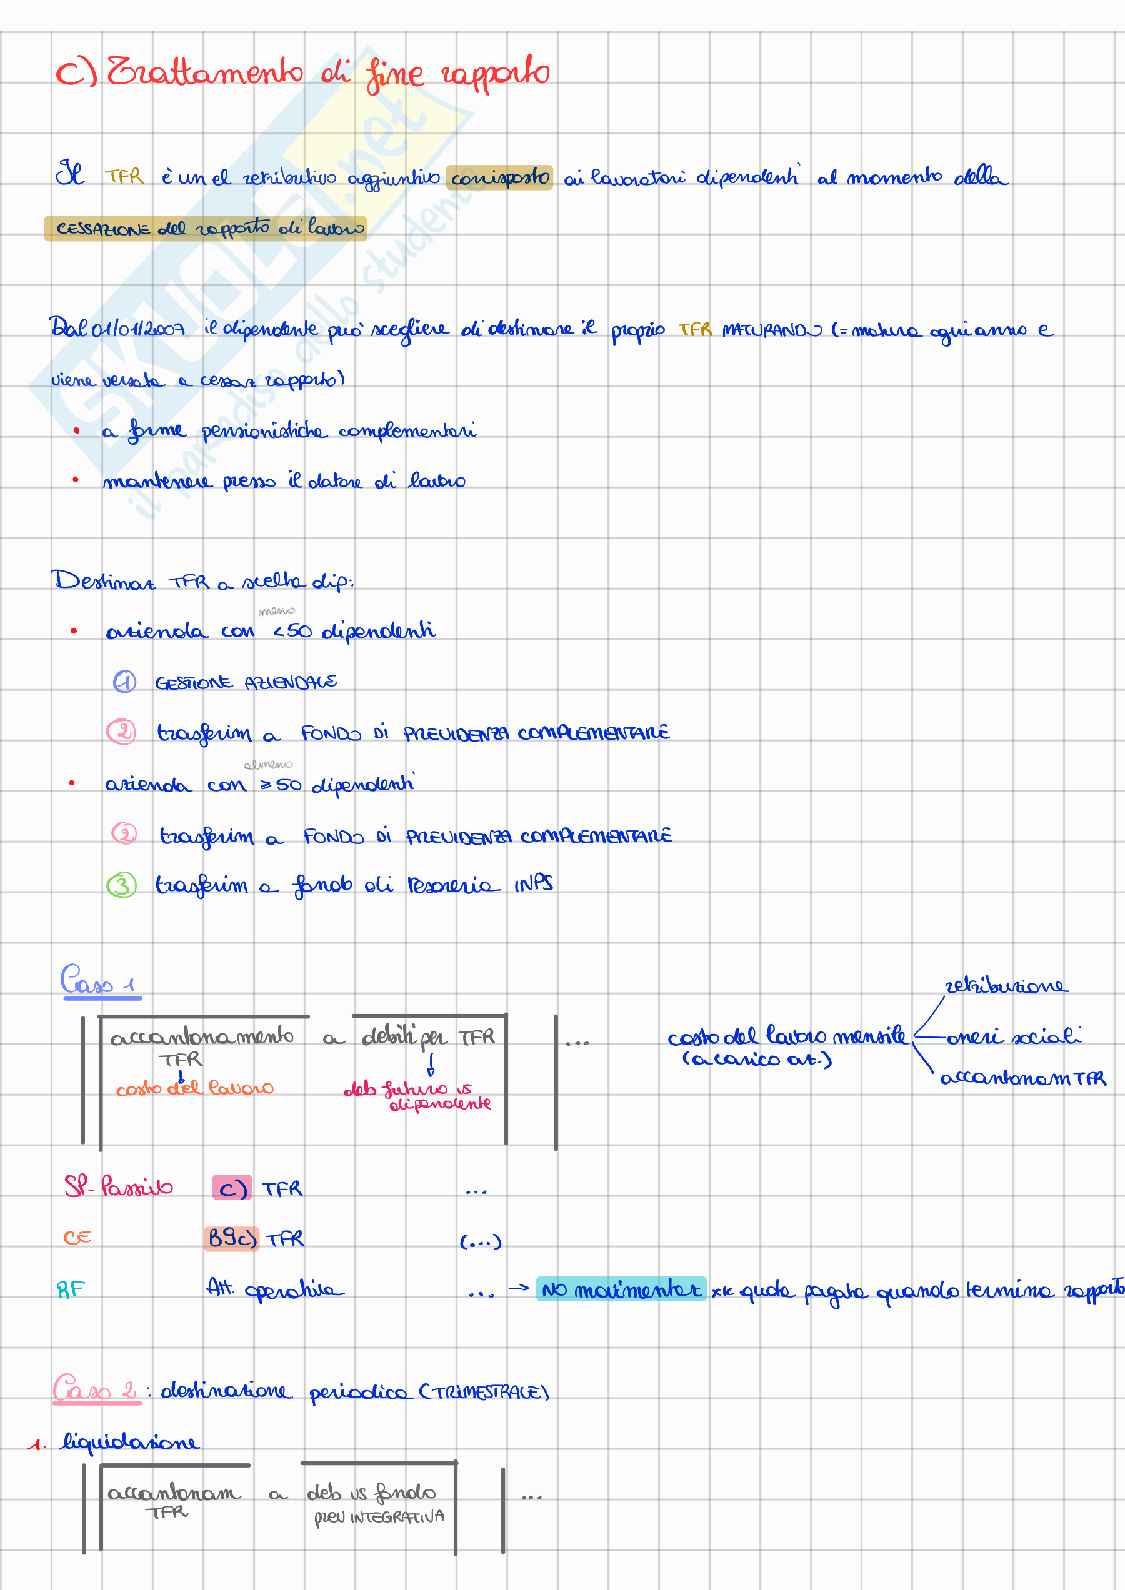 C) Trattamento di fine rapporto
Il TFR è un el retributivo aggiuntivo corrisposto ai lavoratori dipendenti al momento della
CESSAZIONE del rapporto di lavoro
Dal 01/01/2007 il dipendente può scegliere di destinare il proprio TFR MATURANDO (= matura ogni anno e
viene versata a cessaz rapporto)
• a forme pensionistiche complementari
• mantenere presso il datore di lavoro
Destinaz TFR a scelta dip:
meno
• azienda con <50 dipendenti
1 GESTIONE AZIENDALE
2 trasferim a FONDO DI PREVIDENZA COMPLEMENTARE
almeno
• azienda con ≥50 dipendenti
2 trasferim a FONDO DI PREVIDENZA COMPLEMENTARE
3 trasferim a fondo di Tesoreria INPS
Caso 1
retribuzione
accantonamento a debiti per TFR ...
costo del lavoro mensile oneri sociali
TFR
(a carico az.)
accantonam TFR
costo del lavoro
deb futuro vs
dipendente
SP-Passivo C) TFR ...
CE B9c) TFR (...)
RF Att. operativa ... → NO movimentaz xk quota pagata quando termina rapporto
Caso 2: destinazione periodica (TRIMESTRALE)
1. liquidazione
accantonam a deb vs fondo ...
TFR prev INTEGRATIVA
SKUOLA.net
il paradiso dello studente